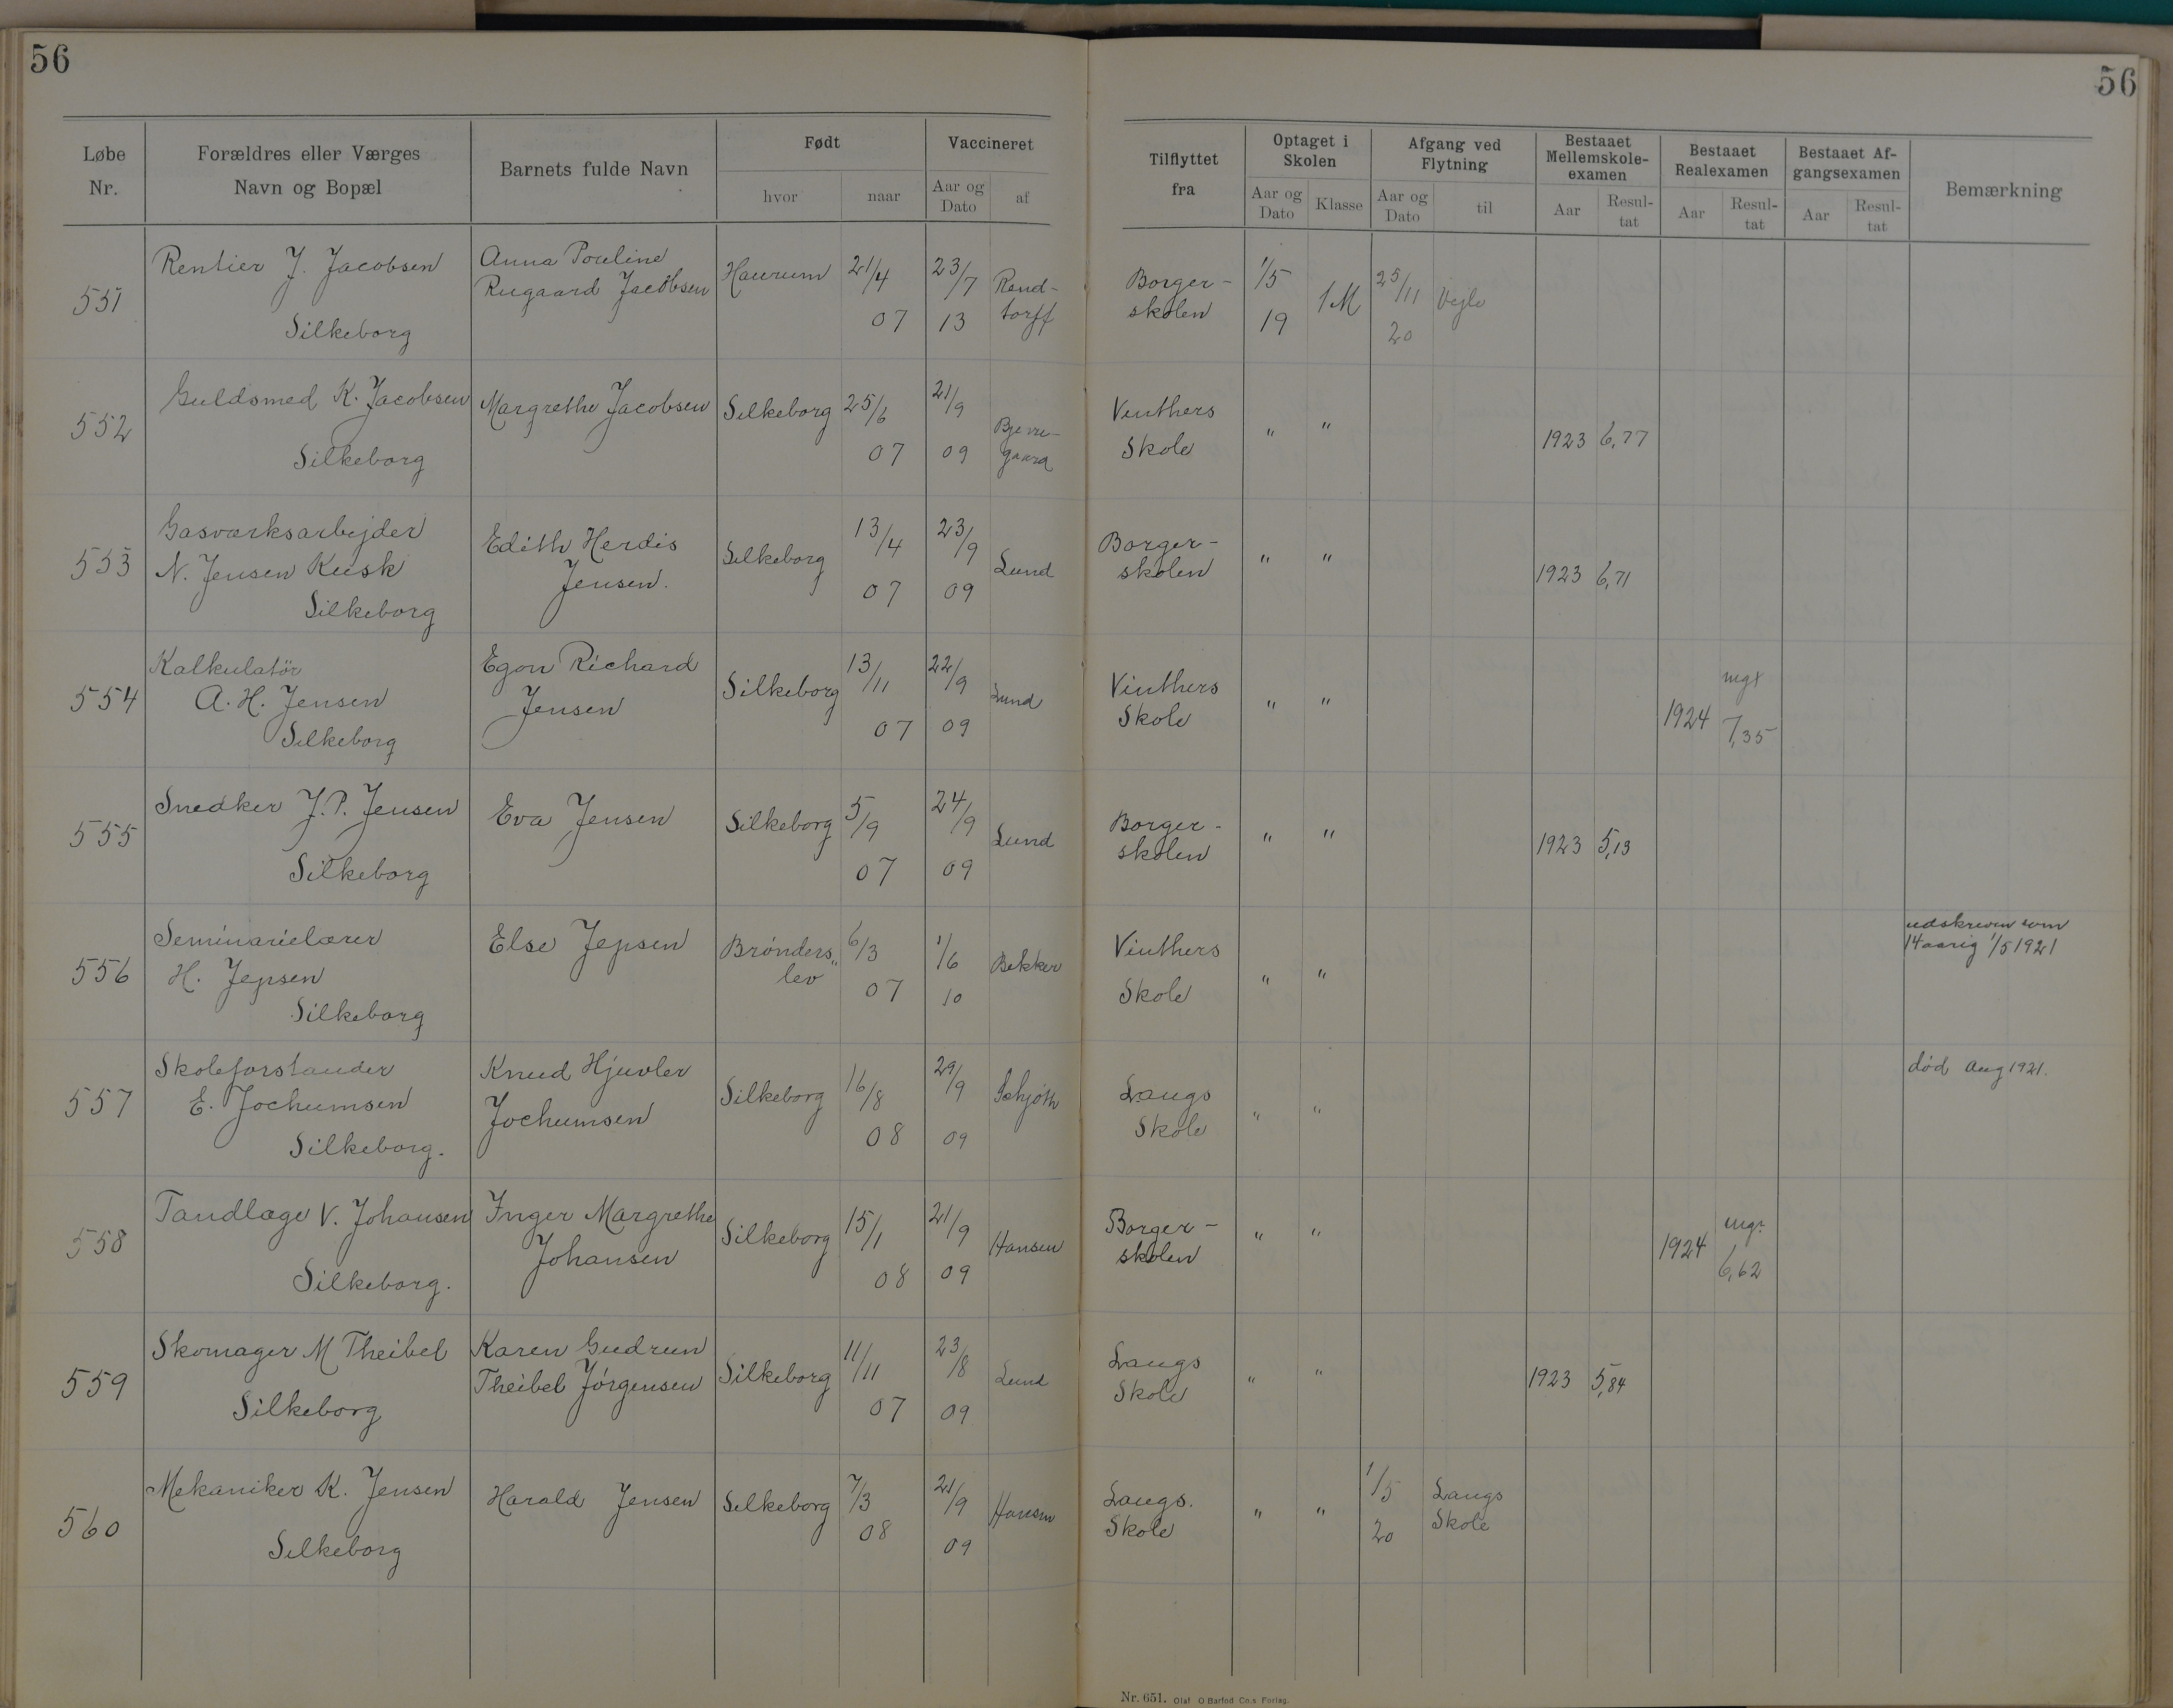 56
56
Løbe Nr.
Forældres eller Værges Navn og Bopæl
Barnets fulde Navn
Født
hvor
naar
Vaccineret
Aar og Dato
af
Tilflyttet fra
Optaget i Skolen
Aar og Dato
Klasse
Afgang ved Flytning
Aar og Dato
til
Bestaaet Mellemskole-examen
Aar
Resul-tat
Bestaaet Realexamen
Aar
Resul-tat
Bestaaet Af-gangsexamen
Aar
Resul-tat
Bemærkning
551
Rentier J. Jacobsen
Silkeborg
Anna Pouline
Rugaard Jacobsen
Haurum
21/4
07
23/7
13
Rend-
torff
Borger-
skolen
1/5
19
1M
25/11
20
Vejle
552
Guldsmed K. Jacobsen
Silkeborg
Margrethe Jacobsen
Silkeborg
25/6
07
21/9
09
Bjerre-
gaard
Vinthers
Skole
" "
1923 6,77
553
Gasværksarbejder
N. Jensen Kusk
Silkeborg
Edith Herdis
Jensen.
Silkeborg
13/4
07
23/9
09
Lund
Borger-
skolen
" "
1923 6,71
554
Kalkulatör
A. H. Jensen
Silkeborg
Egon Richard
Jensen
Silkeborg
13/11
07
22/9
09
Lund
Vinthers
Skole
" "
1924
mg÷
7,35
555
Snedker J. P. Jensen
Silkeborg
Eva Jensen
Silkeborg
5/9
07
24/9
09
Lund
Borger-
skolen
" "
1923 5,13
556
Seminarielærer
H. Jepsen
Silkeborg
Else Jepsen
Brønders„
lev
6/3
07
1/6
10
Bekker
Vinthers
Skole
" "
udskreven som
14aarig 1/5 1921
557
Skoleforstander
E. Jochumsen
Silkeborg.
Knud Hjuvler
Jochumsen
Silkeborg
16/8
08
29/9
09
Schjöth
Langs
Skole
" "
død Aug 1921.
558
Tandlæge V. Johansen
Silkeborg.
Inger Margrethe
Johansen
Silkeborg
15/1
08
21/9
09
Hansen
Borger-
skolen
" "
1924
mg÷
6,62
559
Skomager M Theibel
Silkeborg
Karen Gudrun
Theibel Jørgensen
Silkeborg
11/11
07
23/8
09
Lund
Langs
Skole
" "
1923 5,84
560
Mekaniker K. Jensen
Silkeborg
Harald Jensen
Silkeborg
7/3
08
21/9
09
Hansen
Langs.
Skole
" "
1/5
20
Langs
Skole
Nr. 651. Olaf O Barfod Co.s Forlag.